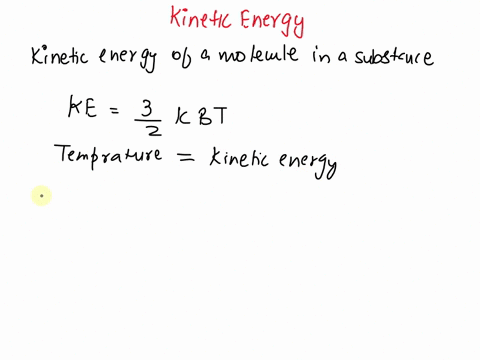 Kinetic Energy
Kinetic energy of a molecule in a substance
KE = 3/2 KBT
Temprature = Kinetic energy